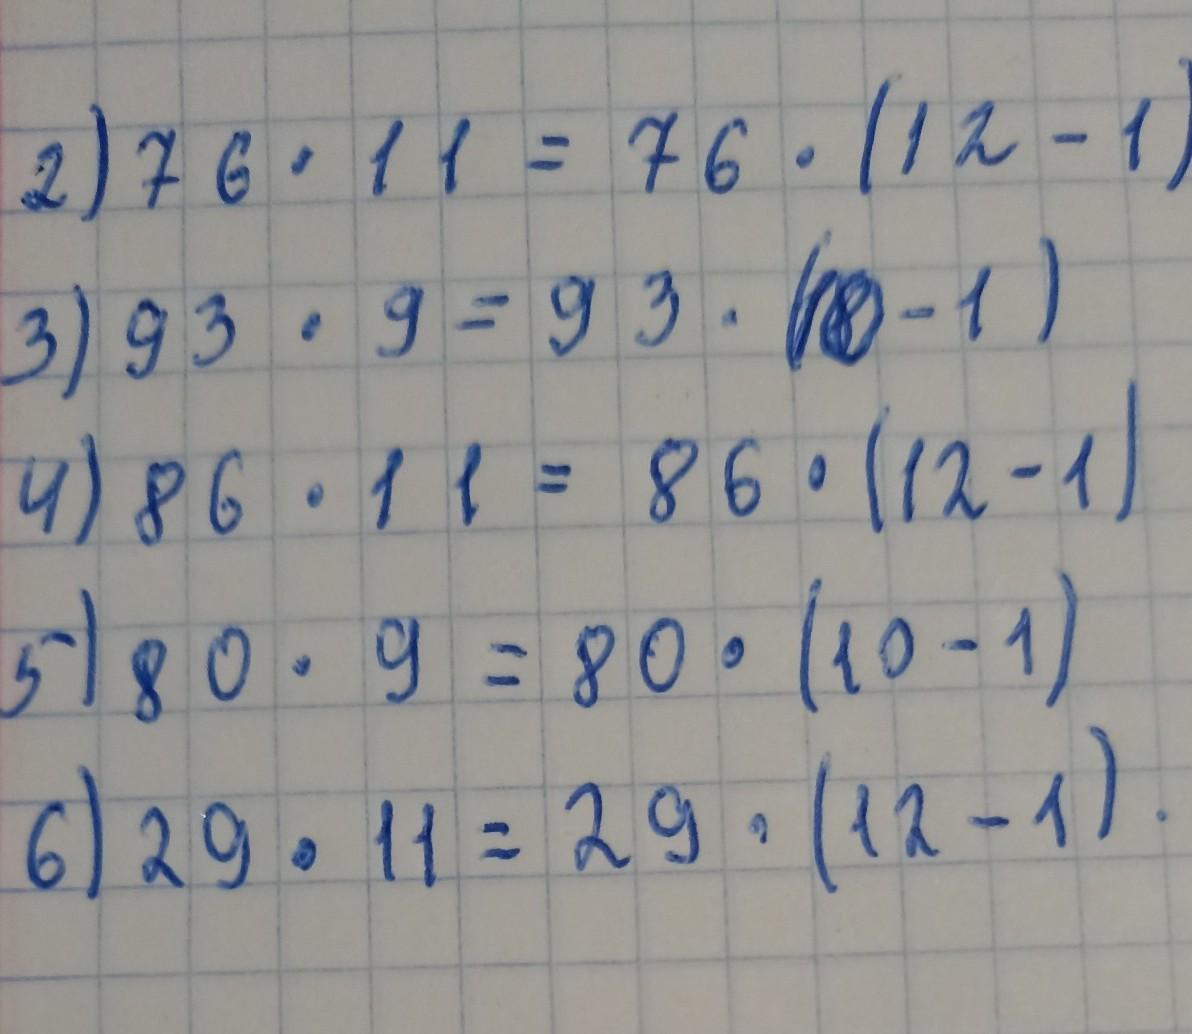 2) 76 · 11 = 76 · (12 - 1)
3) 93 · 9 = 93 · (10 - 1)
4) 86 · 11 = 86 · (12 - 1)
5) 80 · 9 = 80 · (10 - 1)
6) 29 · 11 = 29 · (12 - 1).